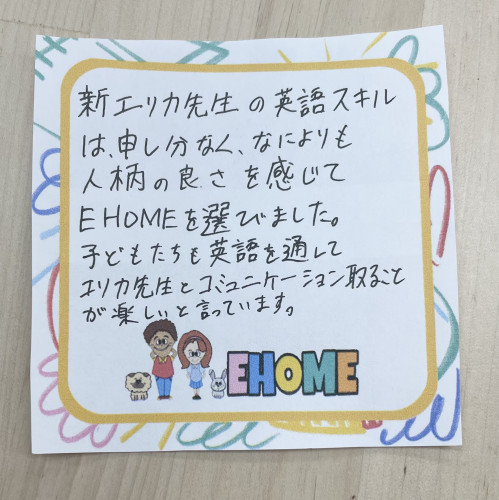 新エリカ先生の英語スキル
は、申し分なく、なによりも
人柄の良さを感じて
EHOMEを選びました。
子どもたちも英語を通して
エリカ先生とコミュニケーション取ること
が楽しいと言っています。
EHOME